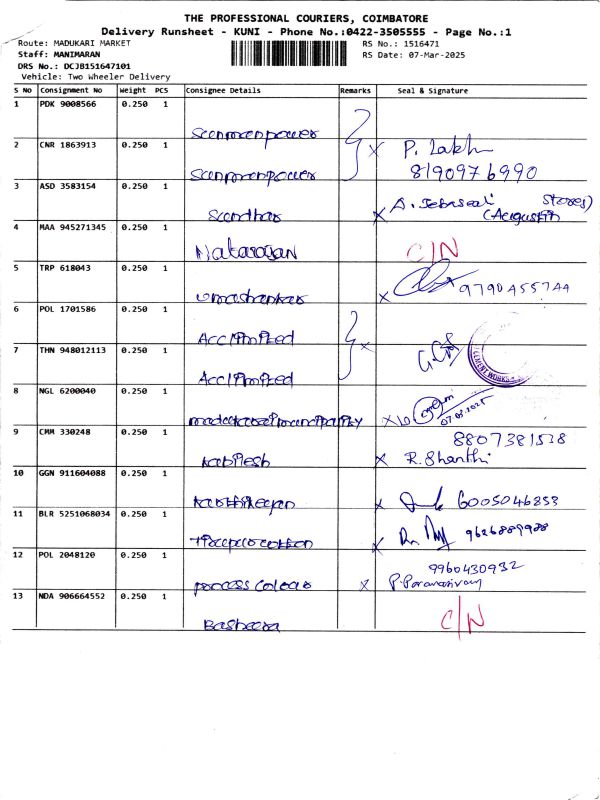 THE PROFESSIONAL COURIERS, COIMBATORE
Delivery Runsheet - KUNI - Phone No.:0422-3505555 - Page No.:1
Route: MADUKARI MARKET RS No.: 1516471
Staff: MANIMARAN RS Date: 07-Mar-2025
DRS No.: DCJB151647101
Vehicle: Two Wheeler Delivery
S No Consignment No Weight PCS Consignee Details Remarks Seal & Signature
1 PDK 9008566 0.250 1 Sunmanpower
2 CNR 1863913 0.250 1 Sunmanpower P. Lakh 8190976990
3 ASD 3583154 0.250 1 Stores)
4 MAA 945271345 0.250 1 Natarajan C/N
5 TRP 618043 0.250 1 Umashankar 9790455744
6 POL 1701586 0.250 1
7 THN 948012113 0.250 1 CEMENT WORKS
8 NGL 6200040 0.250 1 07.03.2025
9 CMM 330248 0.250 1 8807381538
R. Shanthi
10 GGN 911604088 0.250 1 6005046853
11 BLR 5251068034 0.250 1 9626889988
12 POL 2048120 0.250 1 Process Colour 9960430932
P. Paramasivam
13 NDA 906664552 0.250 1 Basheera C/N